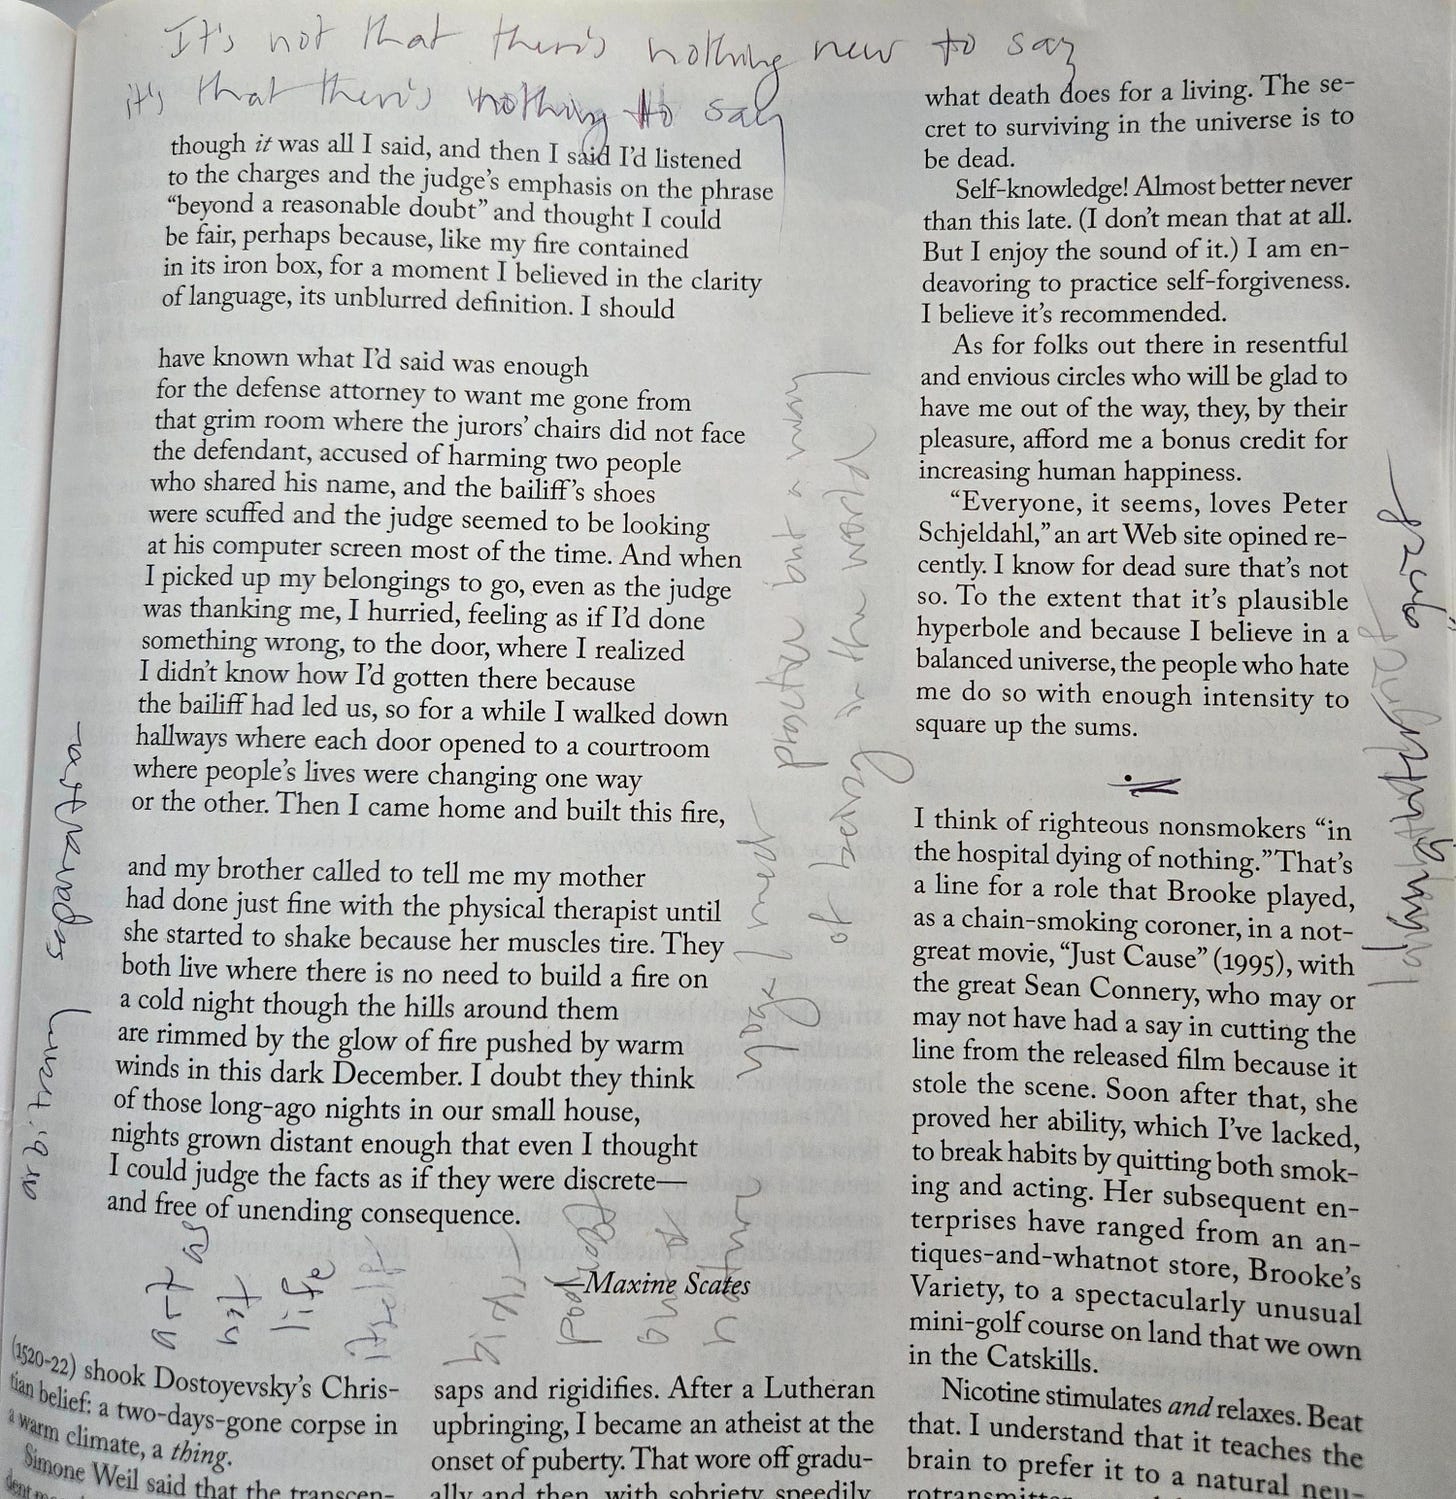 It's not that there's nothing new to say
it's that there's nothing to say
though it was all I said, and then I said I'd listened
to the charges and the judge's emphasis on the phrase
"beyond a reasonable doubt" and thought I could
be fair, perhaps because, like my fire contained
in its iron box, for a moment I believed in the clarity
of language, its unblurred definition. I should
have known what I'd said was enough
for the defense attorney to want me gone from
that grim room where the jurors' chairs did not face
the defendant, accused of harming two people
who shared his name, and the bailiff's shoes
were scuffed and the judge seemed to be looking
at his computer screen most of the time. And when
I picked up my belongings to go, even as the judge
was thanking me, I hurried, feeling as if I'd done
something wrong, to the door, where I realized
I didn't know how I'd gotten there because
the bailiff had led us, so for a while I walked down
hallways where each door opened to a courtroom
where people's lives were changing one way
or the other. Then I came home and built this fire,
and my brother called to tell me my mother
had done just fine with the physical therapist until
she started to shake because her muscles tire. They
both live where there is no need to build a fire on
a cold night though the hills around them
are rimmed by the glow of fire pushed by warm
winds in this dark December. I doubt they think
of those long-ago nights in our small house,
nights grown distant enough that even I thought
I could judge the facts as if they were discrete—
and free of unending consequence.
—Maxine Scates
(1520-22) shook Dostoyevsky's Chris-
tian belief: a two-days-gone corpse in
a warm climate, a thing.
Simone Weil said that the transcen-
saps and rigidifies. After a Lutheran
upbringing, I became an atheist at the
onset of puberty. That wore off gradu-
ally and then, with sobriety, speedily
what death does for a living. The se-
cret to surviving in the universe is to
be dead.
Self-knowledge! Almost better never
than this late. (I don't mean that at all.
But I enjoy the sound of it.) I am en-
deavoring to practice self-forgiveness.
I believe it's recommended.
As for folks out there in resentful
and envious circles who will be glad to
have me out of the way, they, by their
pleasure, afford me a bonus credit for
increasing human happiness.
"Everyone, it seems, loves Peter
Schjeldahl," an art Web site opined re-
cently. I know for dead sure that's not
so. To the extent that it's plausible
hyperbole and because I believe in a
balanced universe, the people who hate
me do so with enough intensity to
square up the sums.
I think of righteous nonsmokers "in
the hospital dying of nothing." That's
a line for a role that Brooke played,
as a chain-smoking coroner, in a not-
great movie, "Just Cause" (1995), with
the great Sean Connery, who may or
may not have had a say in cutting the
line from the released film because it
stole the scene. Soon after that, she
proved her ability, which I've lacked,
to break habits by quitting both smok-
ing and acting. Her subsequent en-
terprises have ranged from an an-
tiques-and-whatnot store, Brooke's
Variety, to a spectacularly unusual
mini-golf course on land that we own
in the Catskills.
Nicotine stimulates and relaxes. Beat
that. I understand that it teaches the
brain to prefer it to a natural neu-
rotransmitter